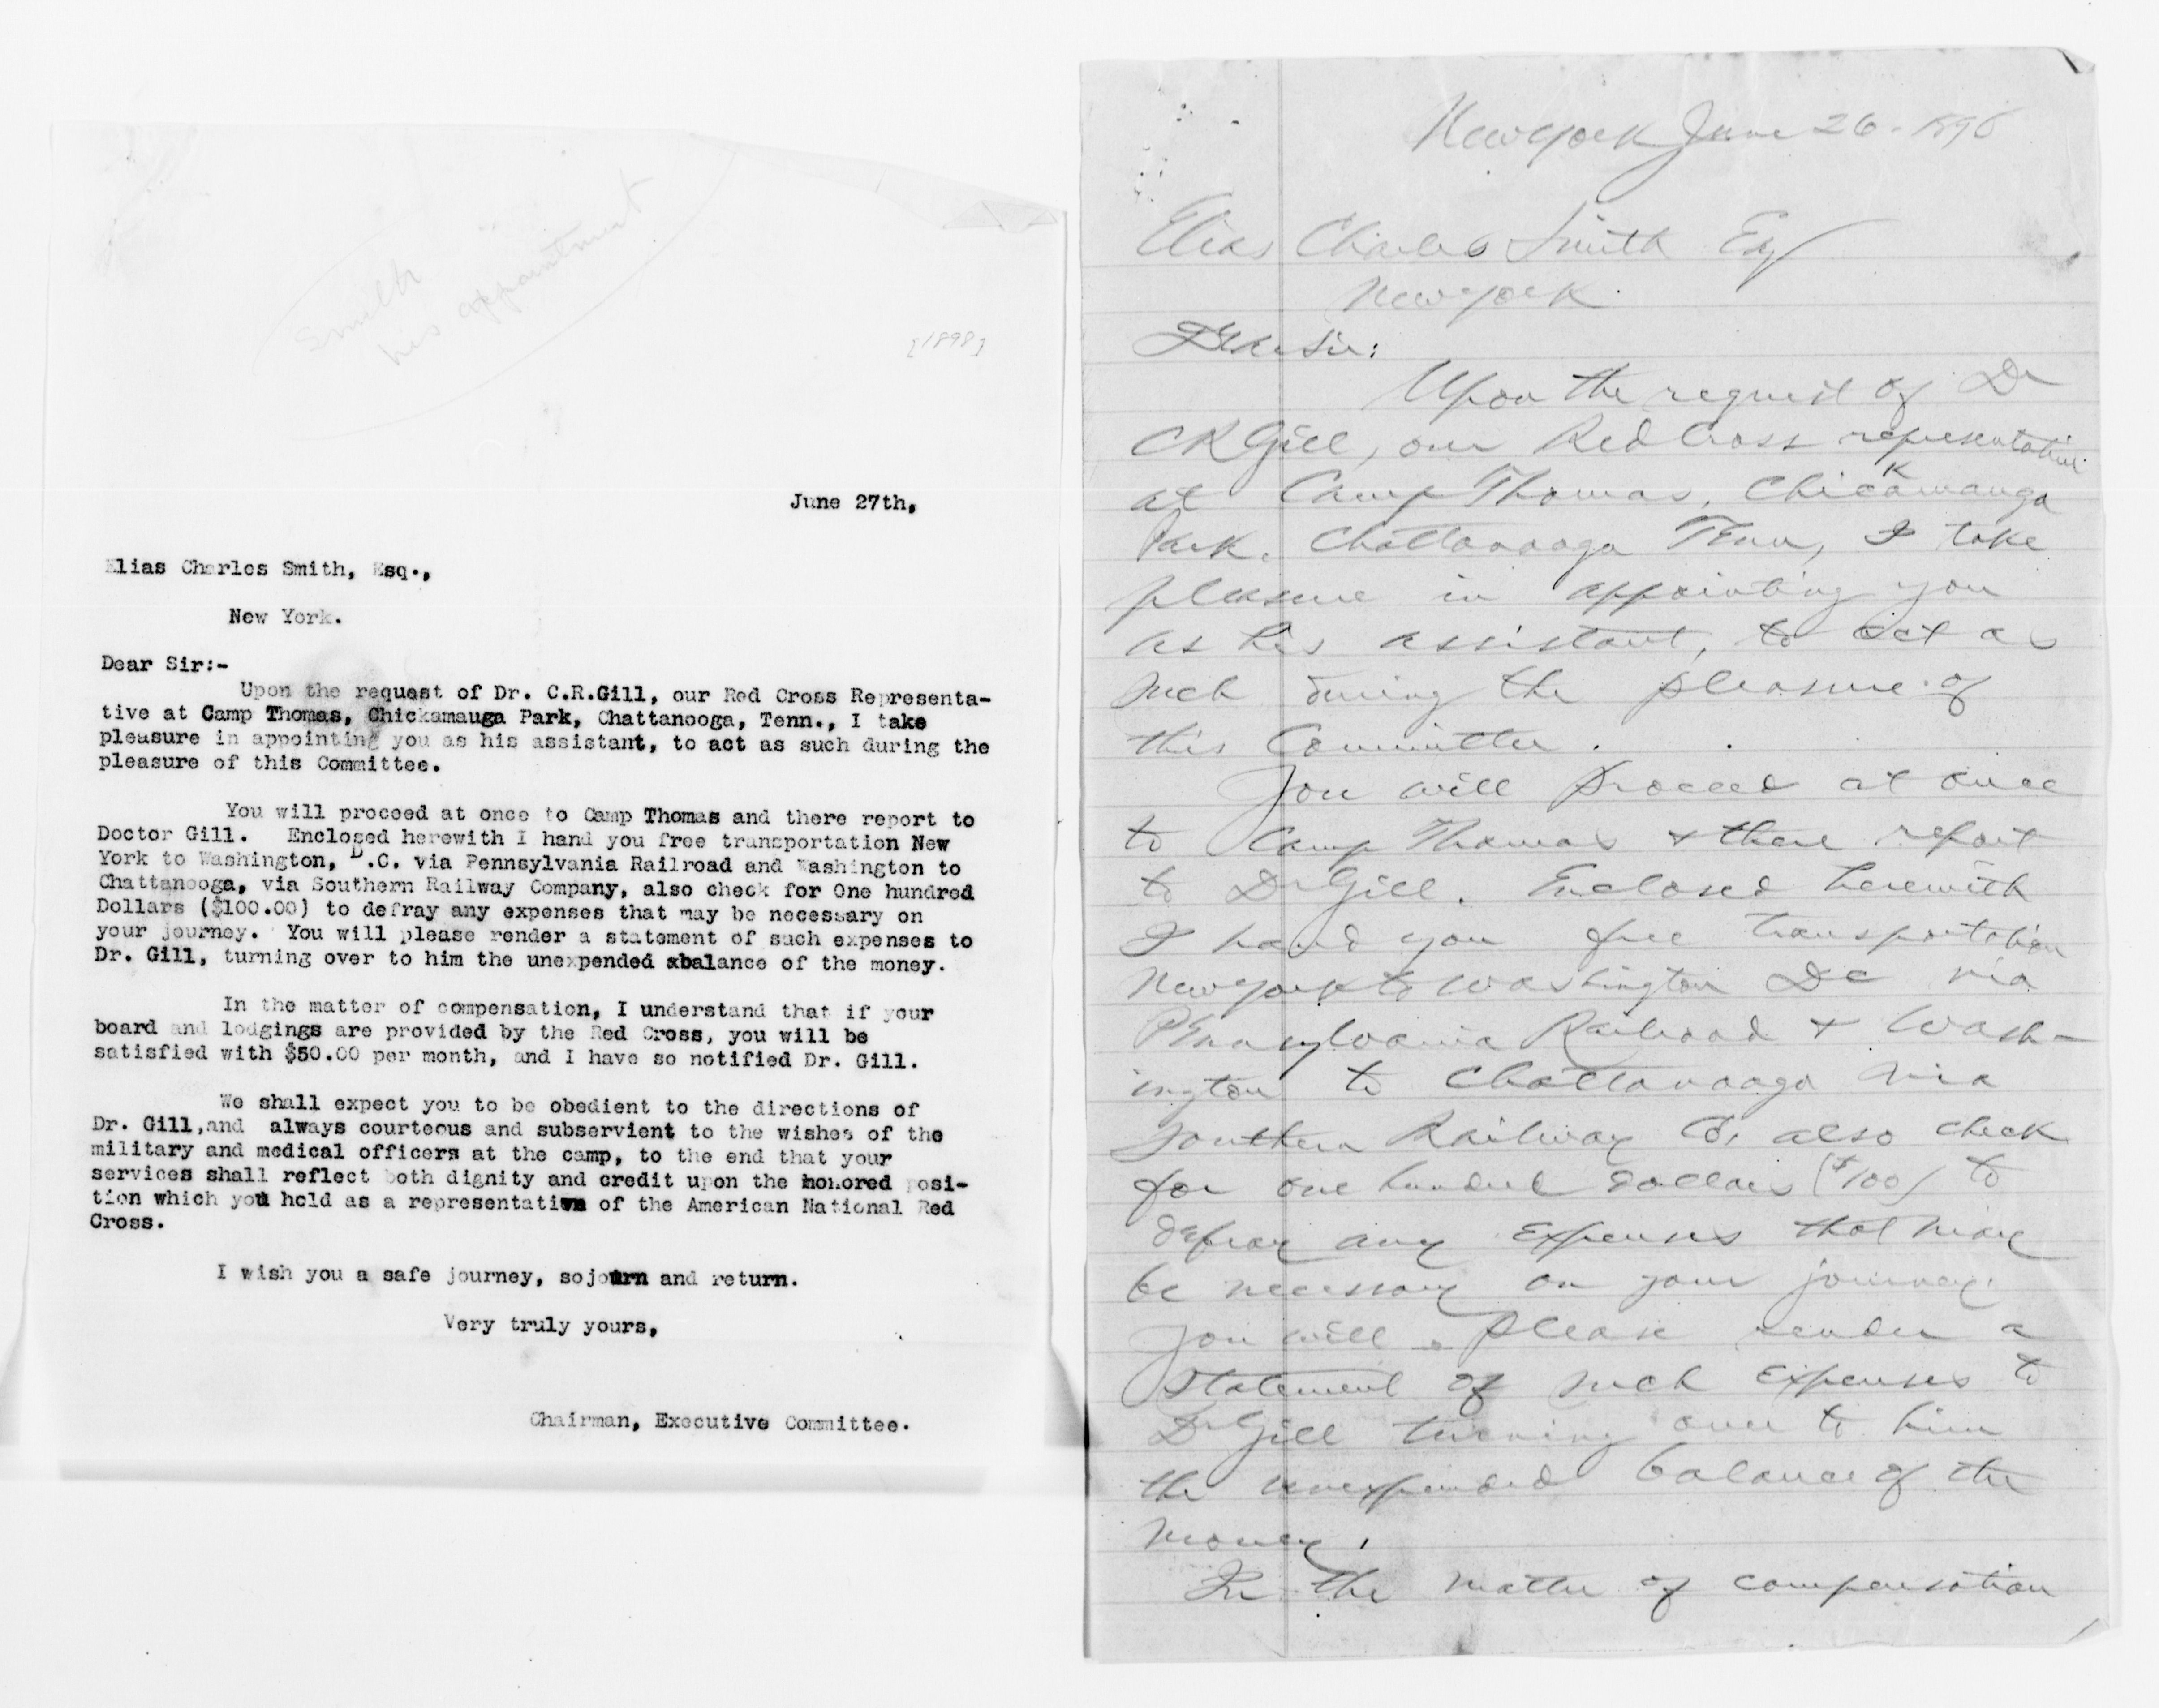 Smith
his appointment
[1898]
June 27th,
Elias Charles Smith, Esq.,
New York.
Dear Sir:-
Upon the request of Dr. C.R.Gill, our Red Cross Representa-
tive at Camp Thomas, Chickamauga Park, Chattanooga, Tenn., I take
pleasure in appointing you as his assistant, to act as such during the
pleasure of this Committee.
You will proceed at once to Camp Thomas and there report to
Doctor Gill. Enclosed herewith I hand you free transportation New
York to Washington, D.C. via Pennsylvania Railroad and Washington to
Chattanooga, via Southern Railway Company, also check for One hundred
Dollars ($100.00) to defray any expenses that may be necessary on
your journey. You will please render a statement of such expenses to
Dr. Gill, turning over to him the unexpended xbalance of the money.
In the matter of compensation, I understand that if your
board and lodgings are provided by the Red Cross, you will be
satisfied with $50.00 per month, and I have so notified Dr. Gill.
We shall expect you to be obedient to the directions of
Dr. Gill,and always courteous and subservient to the wishes of the
military and medical officers at the camp, to the end that your
services shall reflect both dignity and credit upon the honored posi-
tion which you hold as a representative of the American National Red
Cross.
I wish you a safe journey, sojourn and return.
Very truly yours,
Chairman, Executive Committee.
New York June 26 - 1898
Elias Charles Smith Esq
New York.
Dear Sir:
Upon the request of Dr
C R Gill, our Red Cross representative
at Camp Thomas, Chickamauga
Park. Chattanooga Tenn, I take
pleasure in appointing you
as his assistant, to act as
such during the pleasure of
this Committee.
You will proceed at once
to Camp Thomas & there report
to Dr Gill. Enclosed herewith
I hand you free transportation
New York to Washington DC via
Pennsylvania Railroad & Wash-
ington to Chattanooga via
Southern Railway Co, also check
for one hundred dollars ($100) to
defray any expenses that may
be necessary on your journey.
You will please render a
statement of such expenses to
Dr Gill turning over to him
the unexpended balance of the
money.
In the matter of compensation